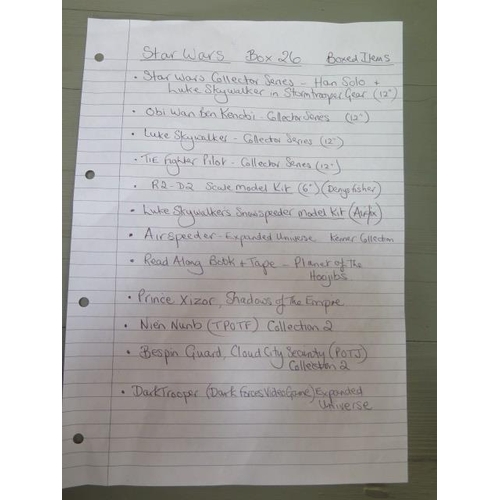 Star Wars Box 26 Boxed Items
• Star Wars Collector Series - Han Solo +
Luke Skywalker in Stormtrooper Gear (12")
• Obi Wan Ben Kenobi - Collector Series (12")
• Luke Skywalker - Collector Series (12")
• Tie Fighter Pilot - Collector Series (12")
• R2-D2 Scale model Kit (6") (Denys fisher)
• Luke Skywalkers Snowspeeder model Kit (Airfix)
• Airspeeder - Expanded Universe Kenner Collection
• Read Along Book + Tape - Planet of The
Hoojibs
• Prince Xizor, Shadows of The Empire
• Nien Nunb (TPOTF) Collection 2
• Bespin Guard, Cloud City Security (POTJ)
Collection 2
• Dark Trooper (Dark Forces Video Game) Expanded
Universe